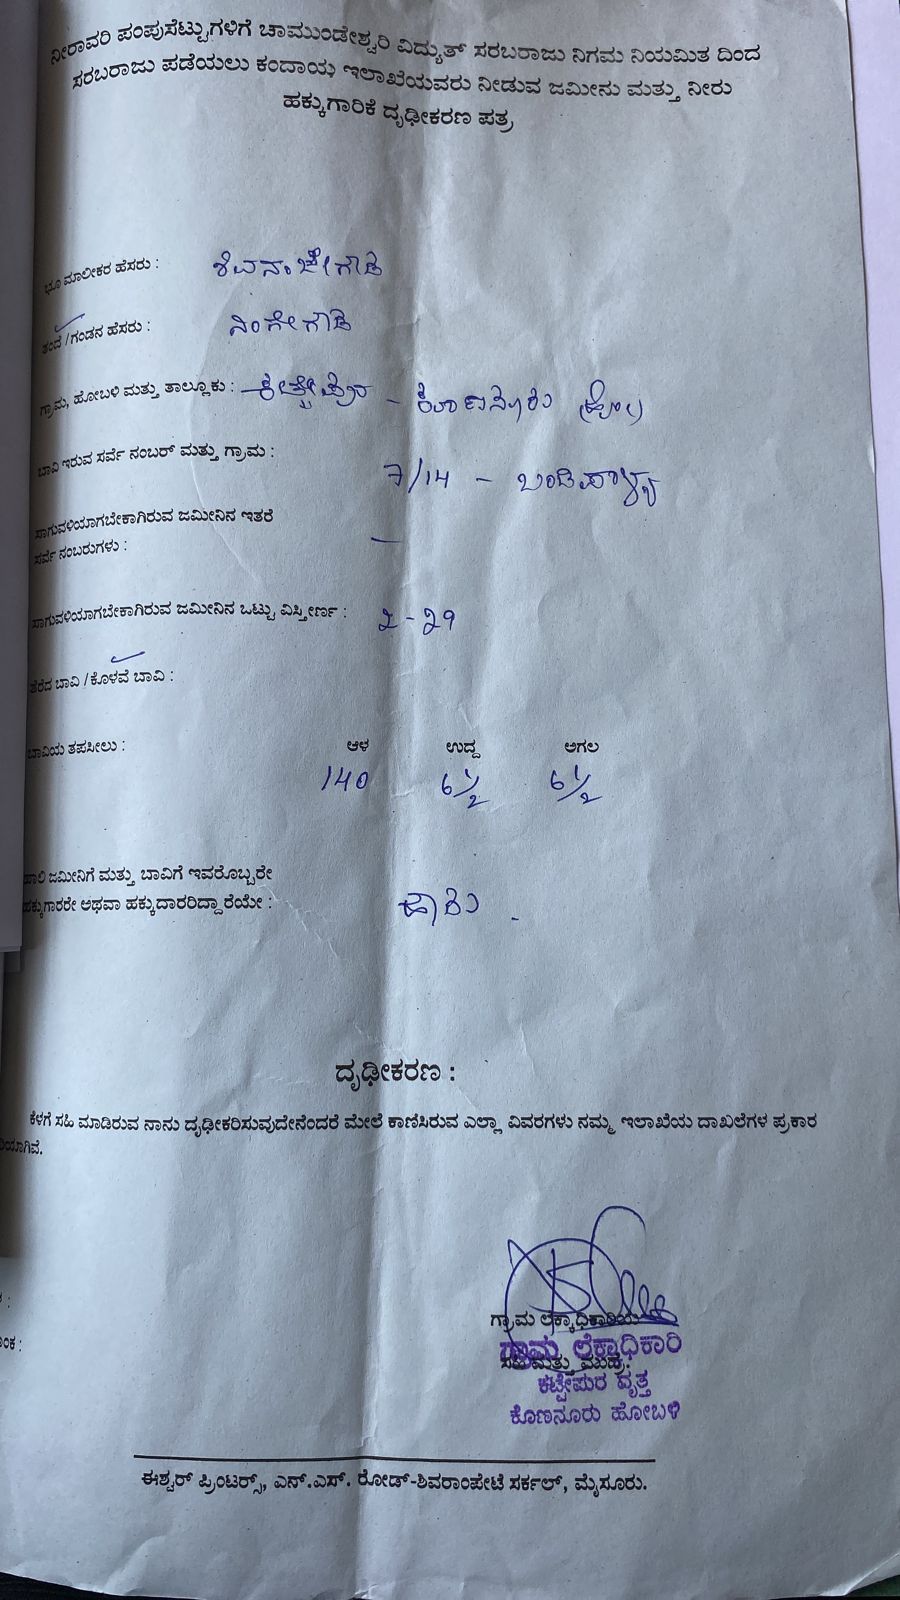 ನೀರಾವರಿ ಪಂಪುಸೆಟ್ಟುಗಳಿಗೆ ಚಾಮುಂಡೇಶ್ವರಿ ವಿದ್ಯುತ್ ಸರಬರಾಜು ನಿಗಮ ನಿಯಮಿತ ದಿಂದ
ಸರಬರಾಜು ಪಡೆಯಲು ಕಂದಾಯ ಇಲಾಖೆಯವರು ನೀಡುವ ಜಮೀನು ಮತ್ತು ನೀರು
ಹಕ್ಕುಗಾರಿಕೆ ದೃಢೀಕರಣ ಪತ್ರ
ಭೂ ಮಾಲೀಕರ ಹೆಸರು : ಶಿವನಂಜೇಗೌಡ
ತಂದೆ/ಗಂಡನ ಹೆಸರು : ನಿಂಗೇಗೌಡ
ಗ್ರಾಮ, ಹೋಬಳಿ ಮತ್ತು ತಾಲ್ಲೂಕು : ಕಟ್ಟೇಪುರ - ಕೊಣನೂರು
ಬಾವಿ ಇರುವ ಸರ್ವೆ ನಂಬರ್ ಮತ್ತು ಗ್ರಾಮ : 7/14 - ಬಂಡಿಪಾಳ್ಯ
ಸಾಗುವಳಿಯಾಗಬೇಕಾಗಿರುವ ಜಮೀನಿನ ಇತರೆ
ಸರ್ವೆ ನಂಬರುಗಳು : —
ಸಾಗುವಳಿಯಾಗಬೇಕಾಗಿರುವ ಜಮೀನಿನ ಒಟ್ಟು ವಿಸ್ತೀರ್ಣ : 2-29
ತೆರೆದ ಬಾವಿ / ಕೊಳವೆ ಬಾವಿ :
ಬಾವಿಯ ತಪಸೀಲು : ಆಳ ಉದ್ದ ಅಗಲ
140 6½ 6½
ಹಾಲಿ ಜಮೀನಿಗೆ ಮತ್ತು ಬಾವಿಗೆ ಇವರೊಬ್ಬರೇ
ಹಕ್ಕುಗಾರರೇ ಅಥವಾ ಹಕ್ಕುದಾರರಿದ್ದಾರೆಯೇ :
ದೃಢೀಕರಣ :
ಕೆಳಗೆ ಸಹಿ ಮಾಡಿರುವ ನಾನು ದೃಢೀಕರಿಸುವುದೇನೆಂದರೆ ಮೇಲೆ ಕಾಣಿಸಿರುವ ಎಲ್ಲಾ ವಿವರಗಳು ನಮ್ಮ ಇಲಾಖೆಯ ದಾಖಲೆಗಳ ಪ್ರಕಾರ
ಗ್ರಾಮ ಲೆಕ್ಕಾಧಿಕಾರಿಯ
ಗ್ರಾಮ ಲೆಕ್ಕಾಧಿಕಾರಿ
ಸಹಿ ಮತ್ತು ಮುದ್ರೆ.
ಕಟ್ಟೇಪುರ ವೃತ್ತ
ಕೊಣನೂರು ಹೋಬಳಿ
ಈಶ್ವರ್ ಪ್ರಿಂಟರ್‍ಸ್, ಎನ್.ಎಸ್. ರೋಡ್-ಶಿವರಾಂಪೇಟೆ ಸರ್ಕಲ್, ಮೈಸೂರು.